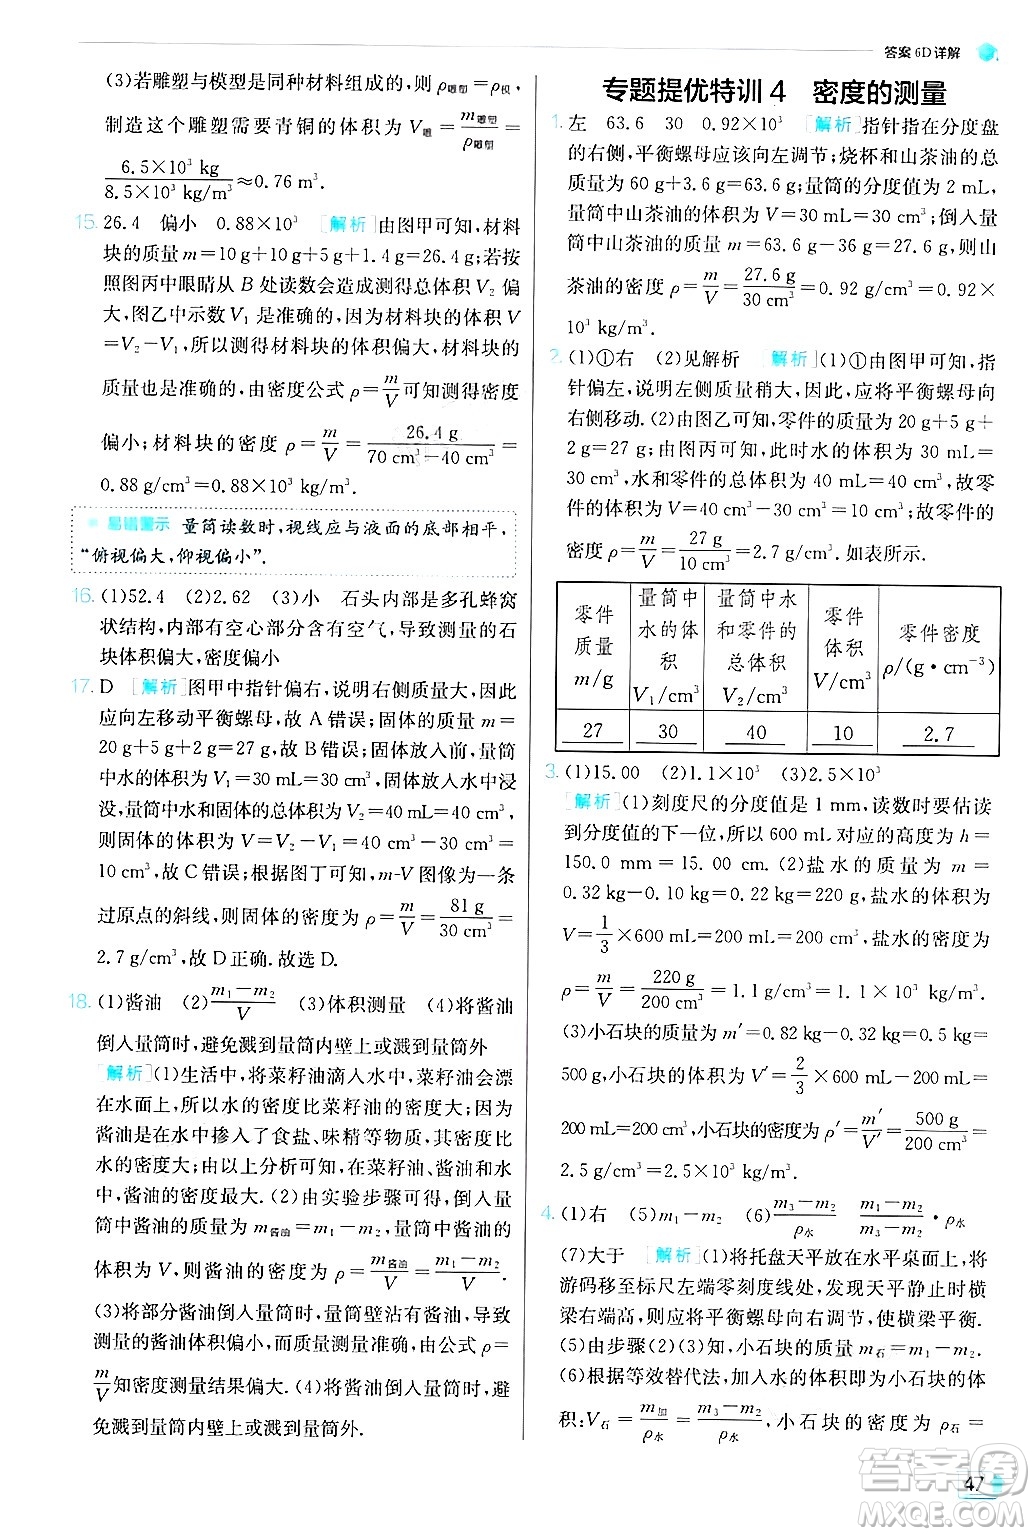 答案 6D 详解
(3)若雕塑与模型是同种材料组成的,则 ρ雕塑=ρ模,
制造这个雕塑需要青铜的体积为 V雕=m雕塑/ρ雕塑=
6.5×10³ kg/8.5×10³ kg/m³≈0.76 m³.
15. 26.4 偏小 0.88×10³ [解析]由图甲可知,材料
块的质量 m=10 g+10 g+5 g+1.4 g=26.4 g;若按
照图丙中眼睛从 B 处读数会造成测得总体积 V₂ 偏
大,图乙中示数 V₁ 是准确的,材料块的体积 V
=V₂-V₁,所以测得材料块的体积偏大,但
质量是准确的,由密度公式 ρ=m/V可知测得密度
偏小;材料块的密度 ρ=m/V=26.4 g/70 cm³-40 cm³=
0.88 g/cm³=0.88×10³ kg/m³.
易错警示 量筒读数时,视线应与液面的底部相平,
“俯视偏大,仰视偏小”.
16. (1)52.4 (2)2.62 (3)小 石头内部是多孔蜂窝
状结构,内部有空心部分含有空气,导致测量的石
块体积偏大,密度偏小
17. D [解析]图甲中指针偏右,说明右侧质量大,
应向左移动平衡螺母,故 A 错误;固体的质量 m=
20 g+5 g+2 g=27 g,故 B 错误;固体放入前,量
筒中水的体积为 V₁=30 mL=30 cm³,放入水中浸
没,量筒中水和固体的体积为 V₂=40 mL=40 cm³,
则固体的体积为 V=V₂-V₁=40 cm³-30 cm³=
10 cm³,故 C 错误;根据图丁可知,m-V 图像为一条
过原点的斜线,则固体的密度为 ρ=m/V=81 g/30 cm³=
2.7 g/cm³,故选 D.
18. (1)酱油 (2)m₁-m₂/V (3)体积测量 (4)将酱油
倒入量筒时,避免溅到量筒内壁上或溅到量筒外
[解析](1)生活中,将菜籽油滴入水中,菜籽油会漂
在水面上,所以水的密度比菜籽油的密度大,又因为
酱油是在水中掺入了食盐、味精等物质,其密度要比
水的密度大;由以上分析可知,在菜籽油、水、酱油
中,酱油的密度最大.(2)由实验步骤可得,倒入量
筒中酱油的质量为 m酱油=m₁-m₂,量筒中酱油的
体积为 V,则酱油的密度为 ρ=m酱油/V=m₁-m₂/V.
(3)将部分酱油倒入量筒时,量筒壁沾有酱油,导致
测量的酱油体积偏小,而质量测量准确,由公式 ρ=
m/V知密度测量结果偏大.(4)将酱油倒入量筒时,避
免溅到量筒内壁上或溅到量筒外.
专题提优特训 4 密度的测量
1. 左 63.6 30 0.92×10³ [解析]指针指在分度盘
的右侧,平衡螺母应该向左调节;烧杯和山茶油的总
质量为 60 g+3.6 g=63.6 g;量筒的分度值为 2 mL,
量筒中山茶油的体积为 V=30 mL=30 cm³,倒入量
筒中山茶油的质量 m=63.6 g-36 g=27.6 g,则山
茶油的密度 ρ=m/V=27.6 g/30 cm³=0.92 g/cm³=0.92×
10³ kg/m³.
2. (1)①右 (2)见解析 [解析](1)①由图甲可知,指
针偏左,说明左侧质量稍大,因此,应将平衡螺母向
右侧移动.(2)由图乙可知,零件的质量为 20 g+5 g+
2 g=27 g,由图丙可知,此时水的体积为 30 mL=
30 cm³,水和零件的总体积为 40 mL=40 cm³,零件的
体积为 V=V₂-V₁=40 cm³-30 cm³=10 cm³,故零件的
密度为 ρ=m/V=27 g/10 cm³=2.7 g/cm³.如表所示.
零件质量 m/g 量筒中水的体积 V₁/cm³ 量筒中水和零件的总体积 V₂/cm³ 零件体积 V/cm³ 零件密度 ρ/(g·cm⁻³)
27 30 40 10 2.7
3. (1)15.00 (2)1.1×10³ (3)2.5×10³
[解析](1)刻度尺的分度值是 1 mm,读数时要估读
到分度值的下一位,所以 600 mL 对应的高度为 h=
150.0 mm=15.00 cm.(2)盐水的质量为 m=
0.32 kg-0.10 kg=0.22 kg=220 g,盐水的体积为
V=1/3×600 mL=200 mL=200 cm³,盐水的密度为
ρ=m/V=220 g/200 cm³=1.1 g/cm³=1.1×10³ kg/m³.
(3)小石块的质量为 m′=0.82 kg-0.32 kg=0.5 kg=
500 g,小石块的体积为 V′=2/3×600 mL-200 mL=
200 mL=200 cm³,小石块的密度为 ρ′=m′/V′=500 g/200 cm³=
2.5 g/cm³=2.5×10³ kg/m³.
4. (1)右 (5)m₁-m₂ (6)m₃-m₂/ρ水 m₁-m₂/m₃-m₂·ρ水
(7)大于 [解析](1)将托盘天平放在水平桌面上,将
游码移至标尺左端零刻度线处,发现天平静止时横
梁右端高,则应将平衡螺母向右调,使横梁平衡.
(5)由步骤(2)(3)知,小石块的质量 m石=m₁-m₂.
(6)根据等效替代法,加入水的体积即小石块的体
积:V石=m加/ρ水=m₃-m₂/ρ水,小石块的密度为 ρ石=
47
答案圈
MXQE.COM